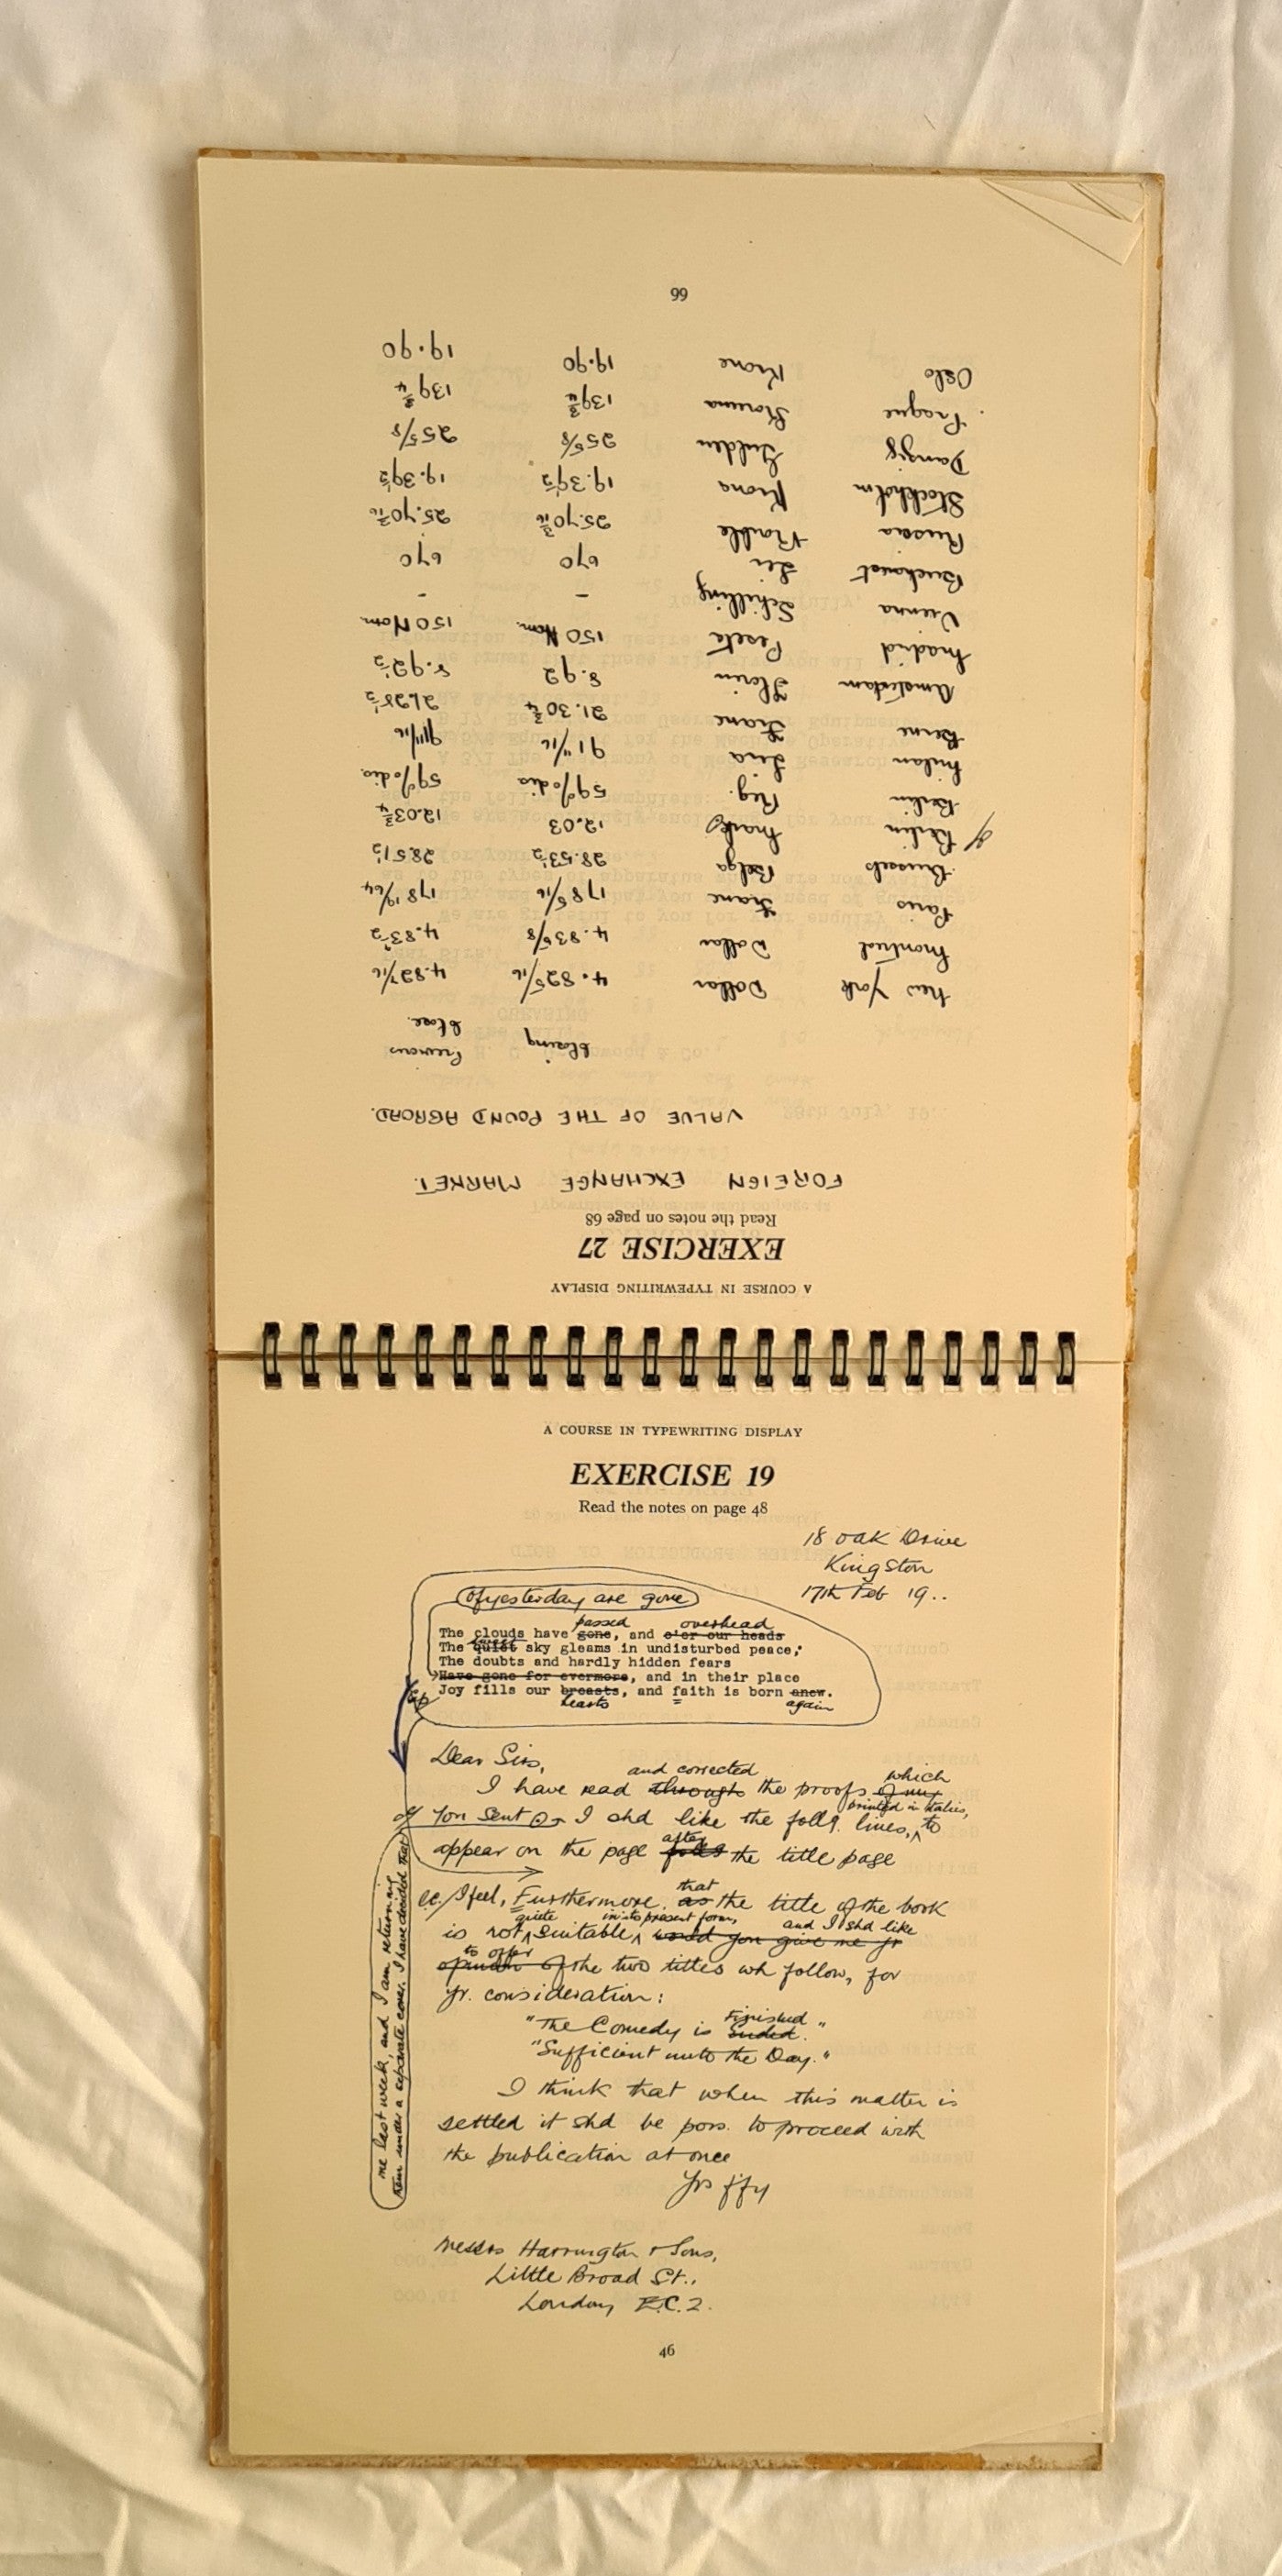 A COURSE IN TYPEWRITING DISPLAY
EXERCISE 27
Read the notes on page 68
FOREIGN EXCHANGE MARKET.
VALUE OF THE POUND ABROAD.
Closing Previous close.
New York Dollar 4.82 5/16 4.82 7/16
Montreal Dollar 4.83 5/8 4.83 1/2
Paris Franc 178 5/16 178 19/64
Brussels Belga 28.53 1/2 28.51 1/2
Berlin Mark 12.03 12.03 3/4
Berlin Reg. 59% dis 59% dis.
Milan Lira 91 11/16 91 11/16
Berne Franc 21.30 3/4 21.28 1/2
Amsterdam Florin 8.92 8.92 1/2
Madrid Peseta 150 Nom. 150 Nom.
Vienna Schilling - -
Bucharest Lei 670 670
Russia Rouble 25.70 3/16 25.70 3/16
Stockholm Krona 19.39 1/2 19.39 1/2
Danzig Gulden 25 5/8 25 5/8
Prague Koruna 139 3/4 139 3/4
Oslo Krone 19.90 19.90
66
A COURSE IN TYPEWRITING DISPLAY
EXERCISE 19
Read the notes on page 48
18 Oak Drive
Kingston
17th Feb 19..
of yesterday are gone
passed overhead
The clouds have gone, and o'er our heads
The quiet sky gleams in undisturbed peace;
The doubts and hardly hidden fears
Have gone for evermore, and in their place
Joy fills our breasts, and faith is born anew.
hearts again
Dear Sirs,
and corrected which
I have read through the proofs of my
printed in italics,
you sent I shd like the follg. lines, to
after
appear on the page the title page
me last week, and I am returning
them under a separate cover. I have decided that
I feel, Furthermore, as that the title of the book
quite in its present form, and I shd like
is not suitable, would you give me yr
to offer
opinion of the two titles wh follow, for
yr. consideration:
Finished
"The Comedy is Ended."
"Sufficient unto the Day."
I think that when this matter is
settled it shd be poss. to proceed with
the publication at once
Yrs ffy
Messrs Harrington & Sons,
Little Broad St.,
London, E.C.2.
46